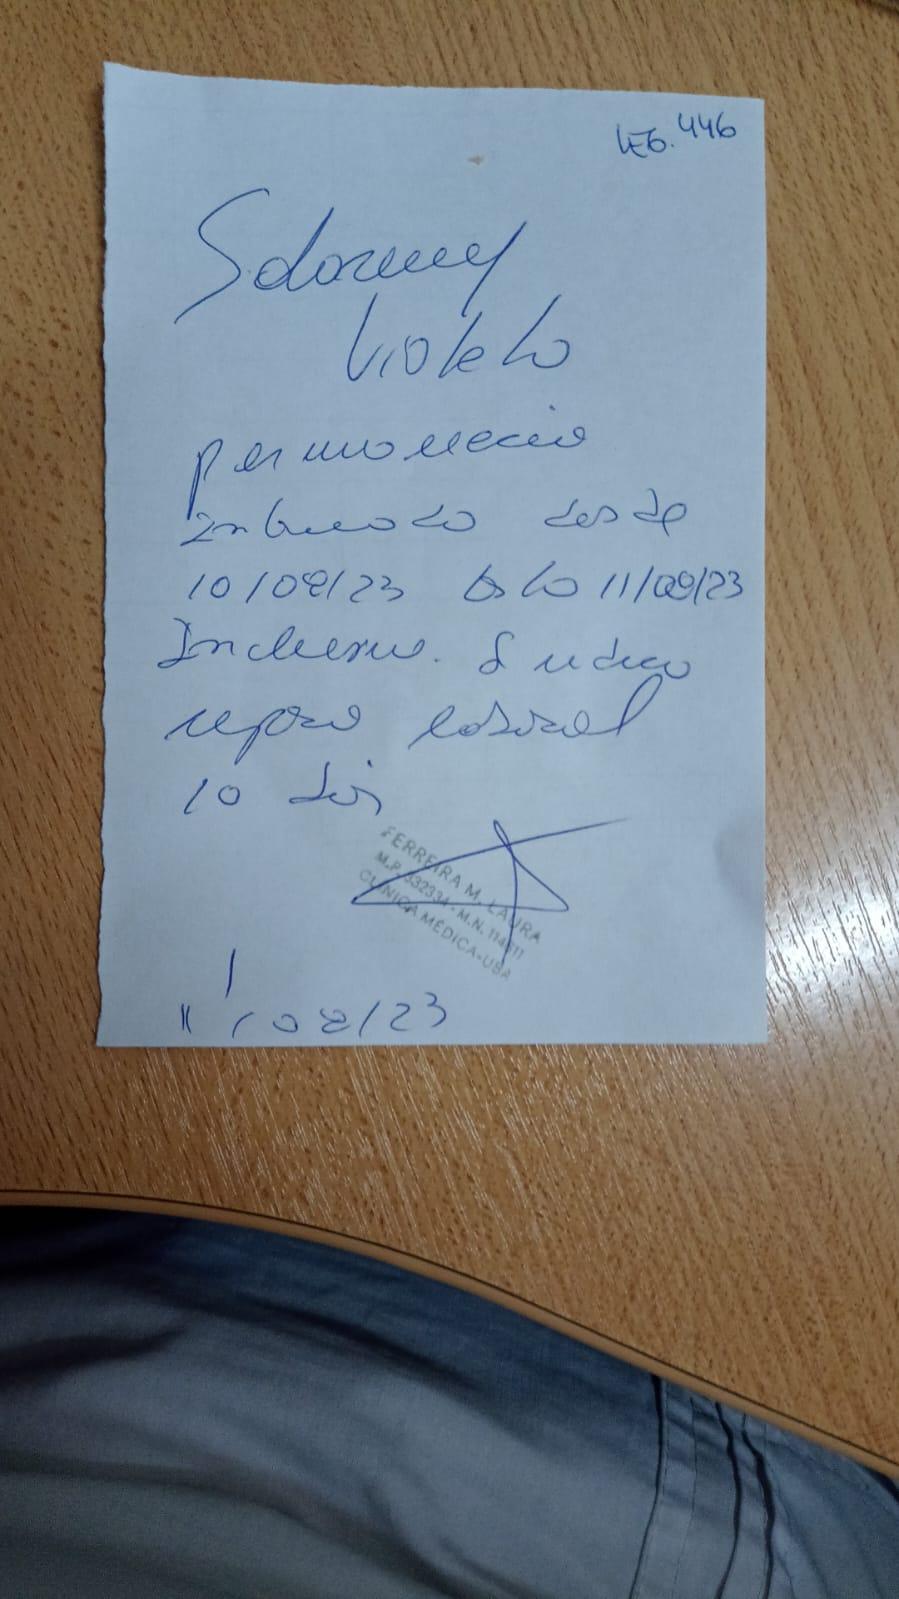 LEG. 446
Violeta
permaneció
internada desde
10/08/23 hasta 11/08/23
Inclusive. Se indica
reposo laboral
10 días
FERREIRA M. LAURA
M.P. 332334 - M.N.
CLÍNICA MÉDICA-UBA
11/08/23